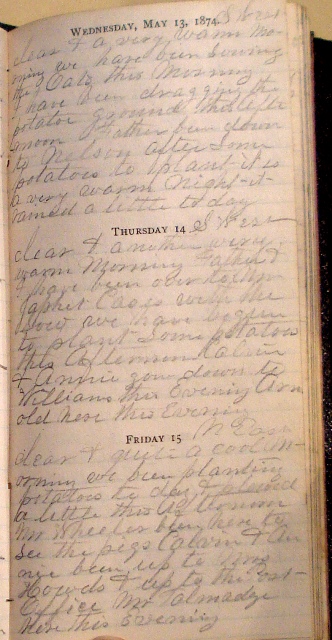 WEDNESDAY, MAY 13, 1874. S West
clear & a very warm Mo-
rning we have been sowing
the Oats this Morning
I have been dragging the
potatoe ground this afte
rnoon Father been down
to Nelson after some
potatoes to plant it is
a very warm Night it
rained a little to day
THURSDAY 14 S West
clear & another very
warm Morning Father &
I have been over to Mr
Japhet Cases with the
Sow we have begun
to plant some potatoes
this afternoon Calvin
& Annie gone down to
Williams this Evening
old here this Evening
FRIDAY 15 N East
clear & quite a cool M-
orning we been planting
potatoes to day & plowed
a little this afternoon
Mr Wheeler been here to
see the pegs Calvin & An
nie been up to Mrs
Howds & up to the Post-
Office Mr Talmadge
here this Evening